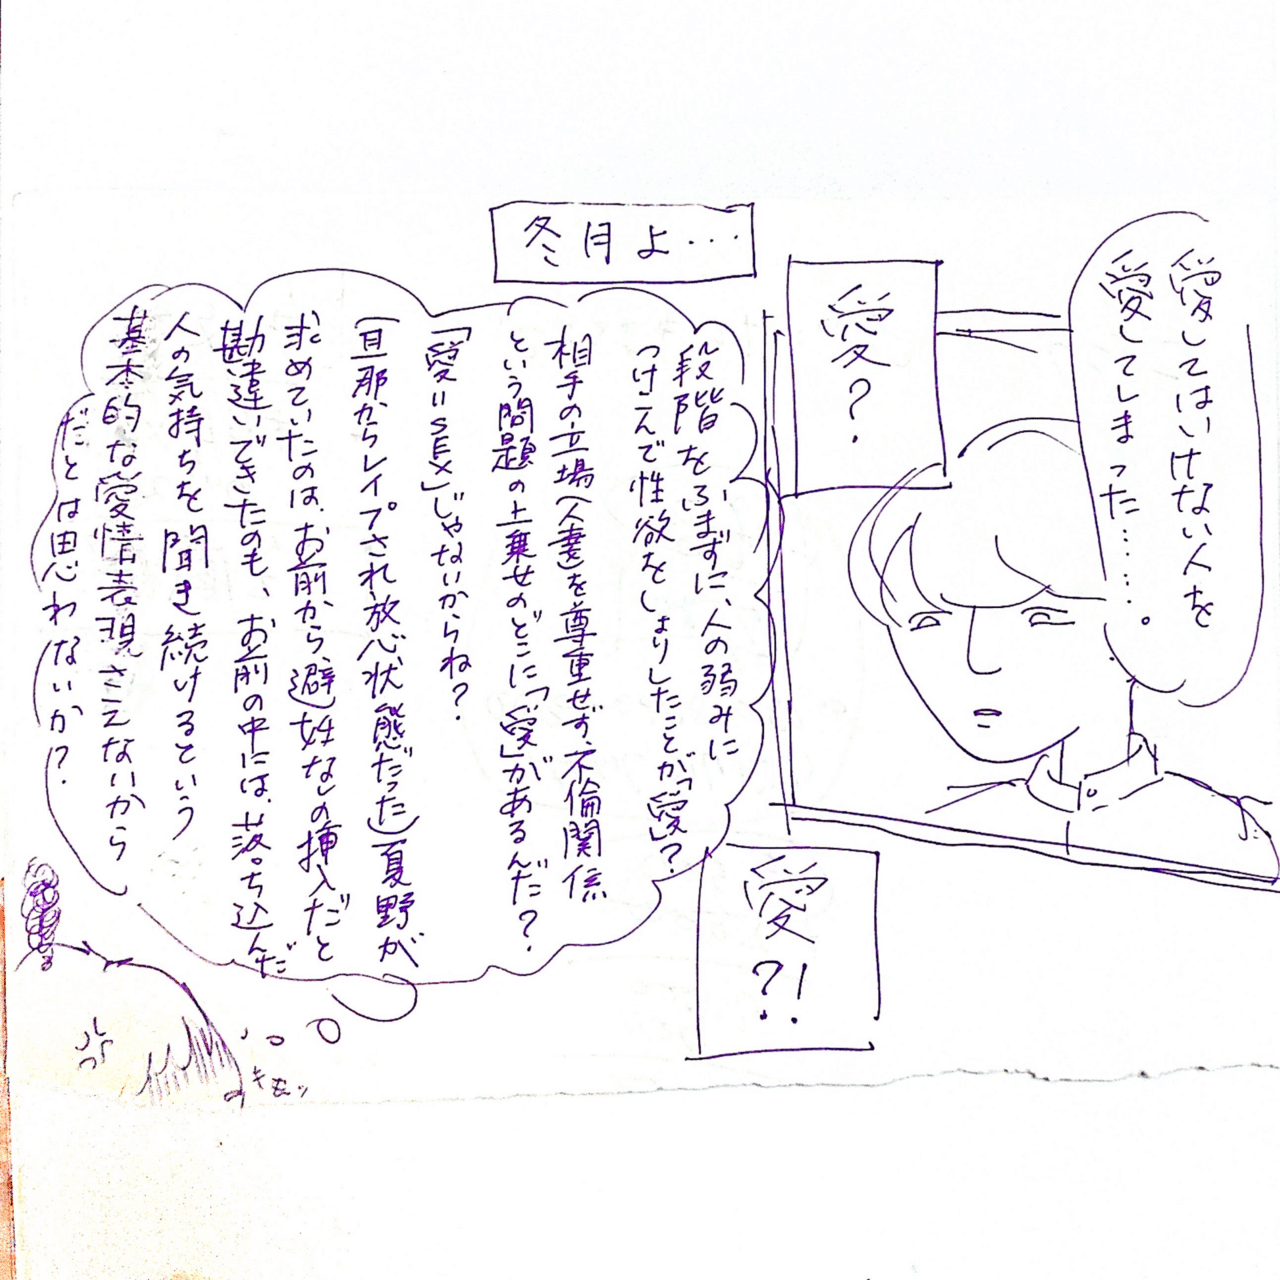 愛してはいけない人を
愛してしまった……。
愛?
愛?!
冬月よ…
段階をふまずに、人の弱みに
つけこんで性欲をしょりしたことが「愛」?
相手の立場(人妻)を尊重せず、不倫関係
という問題の上乗せのどこに「愛」があるんだ?
「愛=SEX」じゃないからね?
(旦那からレイプされ放心状態だった)夏野が
求めていたのは、お前から避妊なしの挿入だと
勘違いできたのも、お前の中には、落ち込んだ
人の気持ちを聞き続けるという
基本的な愛情表現さえないから
だとは思わないか?
キモッ